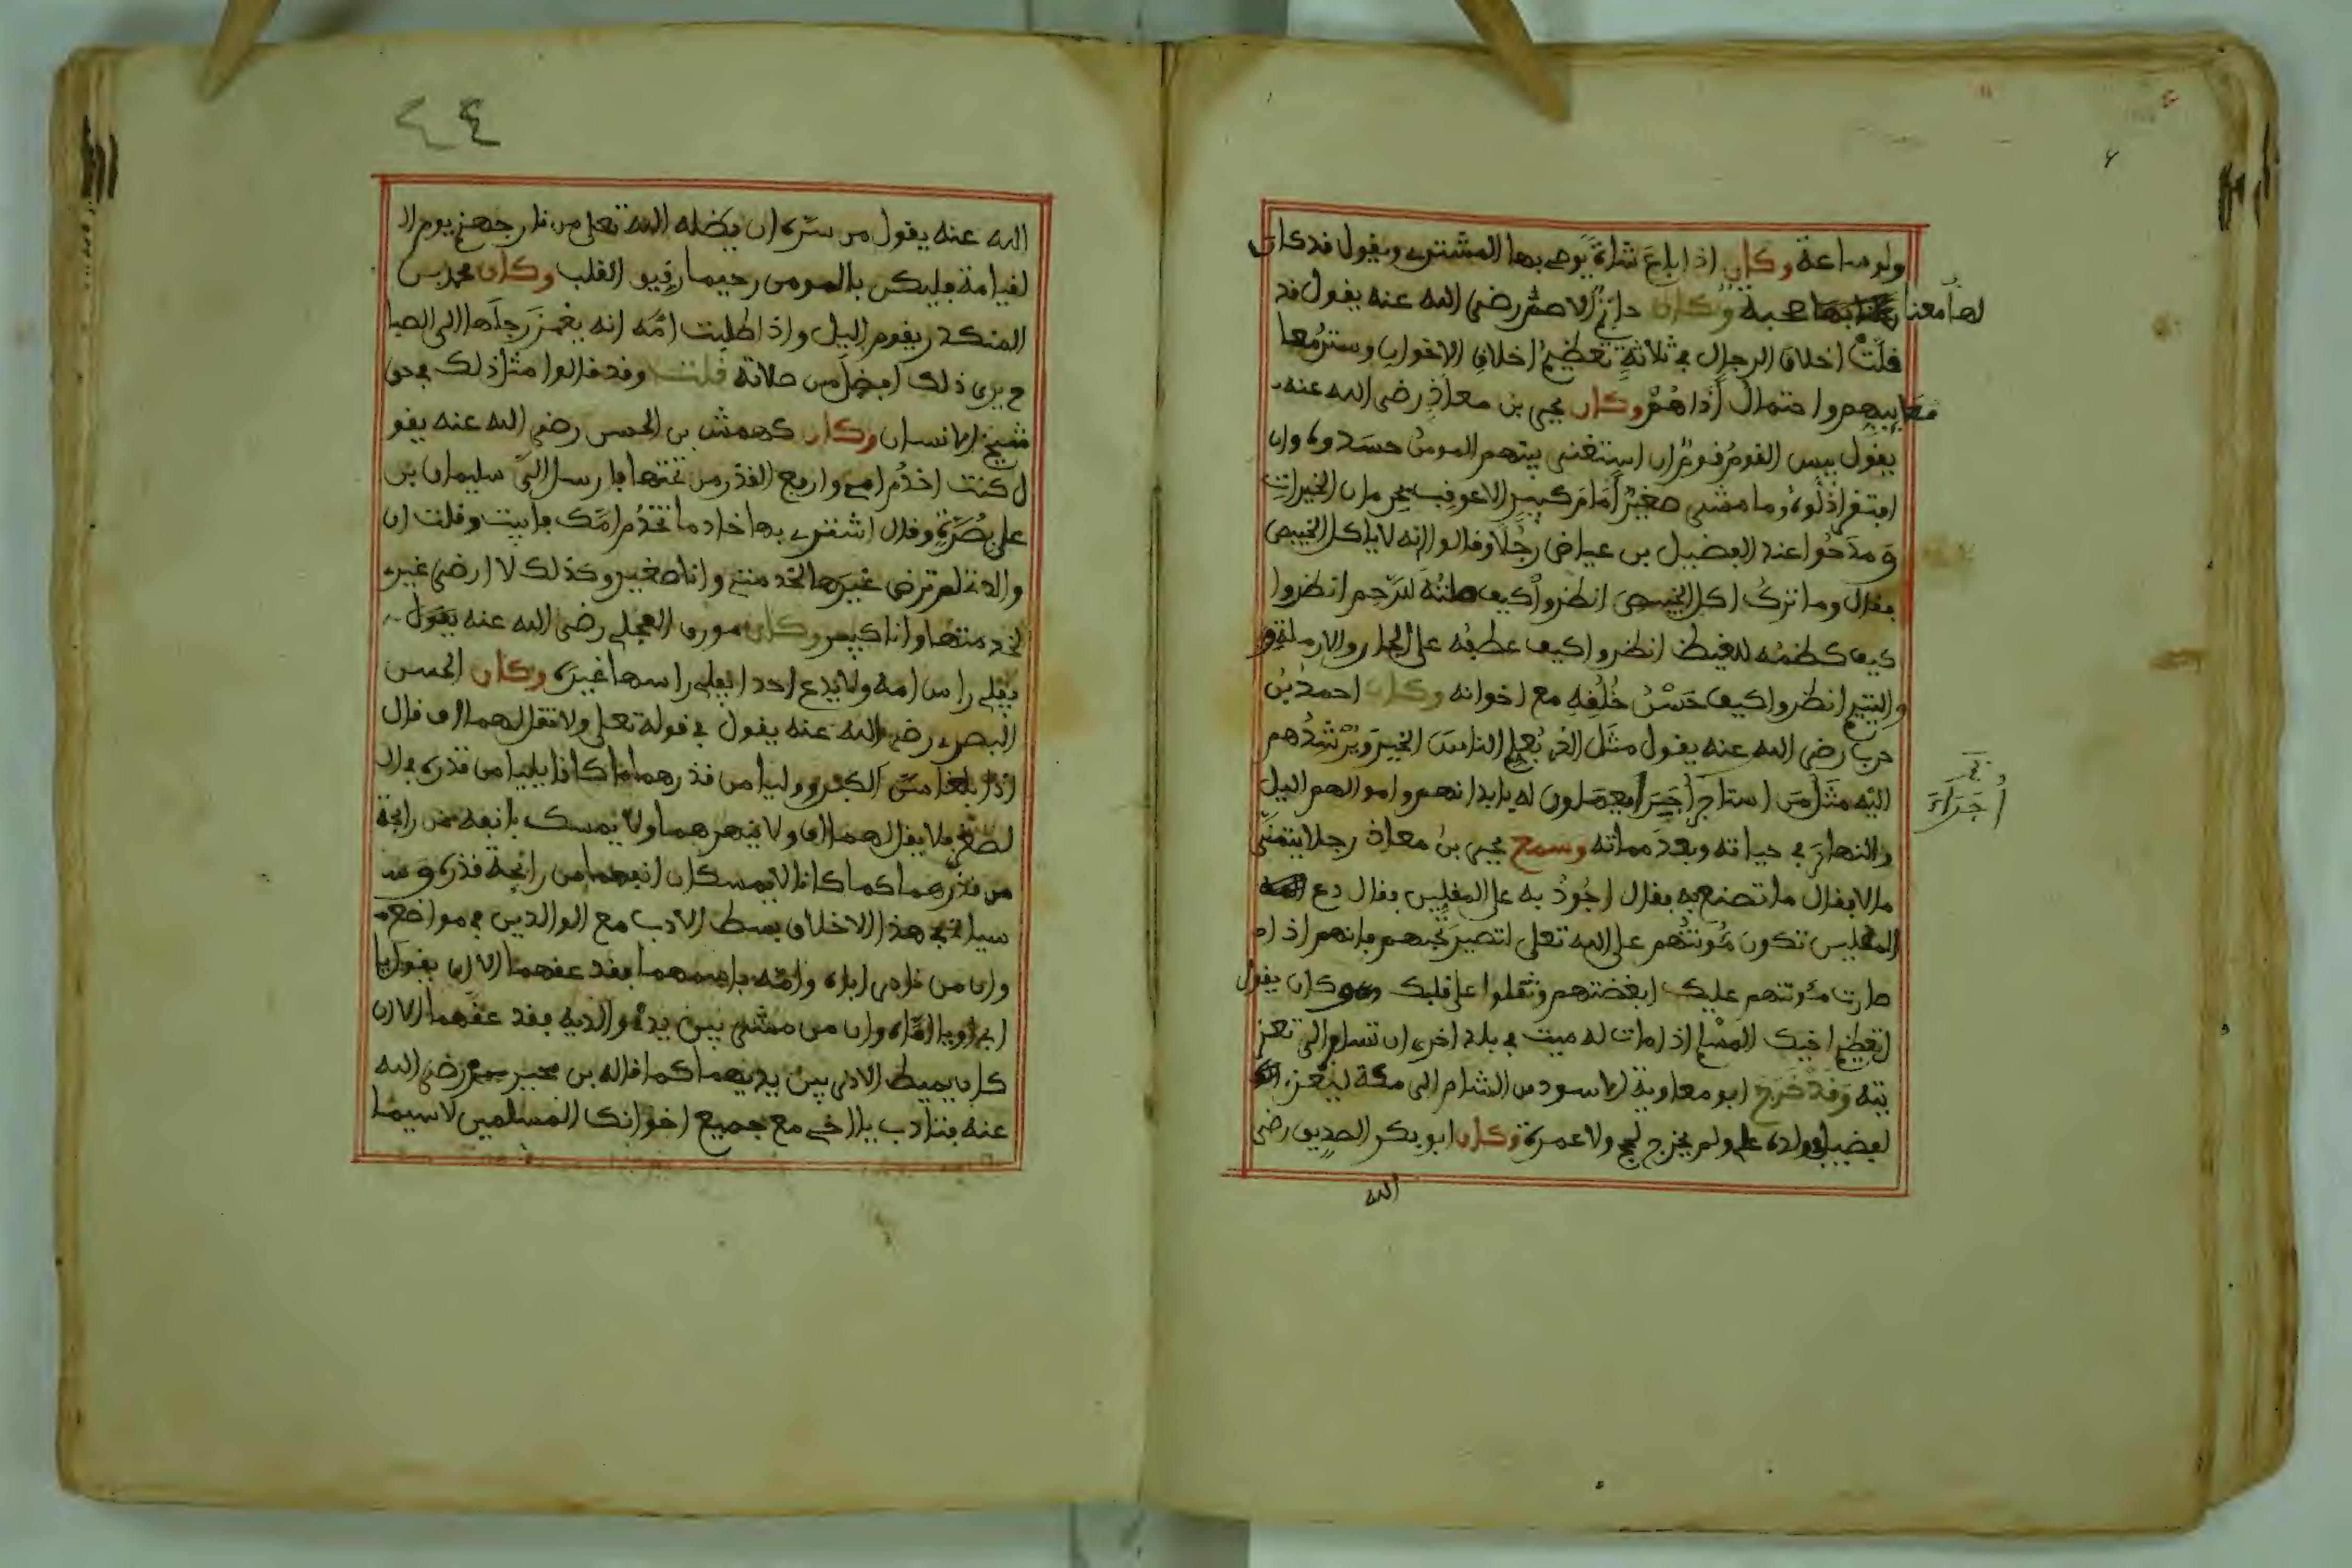 ولو ساعة وكان اذا باع شاة يوصي بها المشتري ويقول قد كان
لها معنا صحبة وكان حاتم الاصم رضي الله عنه يقول قد
قلت اخلاق الرجال في ثلاثة تعظيم اخلاق الاخوان وستر معا
معاييبهم واحتمال أذاهم وكان يحيى بن معاذ رضي الله عنه
يقول بيس القوم قوم ان استغنى بينهم المومن حسدوه وان
افتقر اذلوه وما مشى صغير أمام كبير الا عوقب بحرمان الخيرات
ومدحوا عند الفضيل بن عياض رجلا وقالوا انه لا ياكل الخبيص
فقال وما ترك اكل الخبيص انظروا كيف صلته للرحم انظروا
كيف كظمه للغيظ انظروا كيف عطفه على الجار والارملة و
واليتيم انظروا كيف حسن خلقه مع اخوانه وكان احمد بن
حرب رضي الله عنه يقول مثل الذي يعلم الناس الخير ويرشدهم
اليه مثل من استاجر أجيرا يعملون له بابدانهم واموالهم اليل
أجراء
والنهار في حياته وبعد مماته وسمع يحيى بن معاذ رجلا يتمنى
مالا فقال ما تصنع به فقال اجود به على المفليس فقال دع
المفليس تكون مئونتهم على الله تعلى لتصير تحبهم فانهم اذا
صارت مئونتهم عليك ابغضتهم وثقلوا على قلبك وكان يقول
تعظيم اخيك المسلم اذا مات له ميت في بلد اخرى ان تسافر الى تعز
يته وقد خرج ابو معاوية الاسود من الشام الى مكة ليعزي
لفضيل في ولده علي ولم يخرج لحج ولا عمرة وكان ابو بكر الصديق رضي
الله
٤٤
الله عنه يقول من سره ان يضله الله تعلى من نار جهنم يوم ال
لقيامة فليكن بالمومن رحيما رقيق القلب وكان محمد بن
المنكدر يقوم اليل واذا طلبت امه انه يغمز رجلها الى الصبا
ح يرى ذلك افضل من صلاته قلت وقد قالوا مثل ذلك في حق
شيخ الانسان وكان كهمش بن الحسن رضي الله عنه يقو
ل كنت اخدم امي وارفع القذر من تحتها فارسل الي سليمان بن
علي بصرة وقال اشتري بها خادما تخدم امك فابيت وقلت ان
والدتي لم ترض غيرها لخدمتي وانا صغير وكذلك لا ارضى غيري
لخدمتها وانا كبير وكان مورق العجلي رضي الله عنه يقول
يفلي راس امه ولا يدع احدا يفلي راسها غيره وكان الحسن
البصري رضي الله عنه يقول في قوله تعلى ولا تقل لهما اف قال
اذا بلغا من الكبر ووليا من قذرهما ما كانا يليا من قذره في ال
لصغر فلا يقل لهما اف ولا ينهرهما ولا يمسك بانفه من رايحة
من قذرهما كما كانا لا يمسكان انفهما من رايحة قذره وس
سياتي في هذا الاخلاق بسط الادب مع الوالدين في مواضع
وان من نادى اباه وامه باسمهما فقد عقهما الا ان يقول يا
ابي او يا اماه وان من مشى بين يدي والديه فقد عقهما الا ان
كان يميط الاذى بين يديهما كما قاله بن محيريز رضي الله
عنه فتادب يا اخي مع جميع اخوانك المسلمين لا سيما